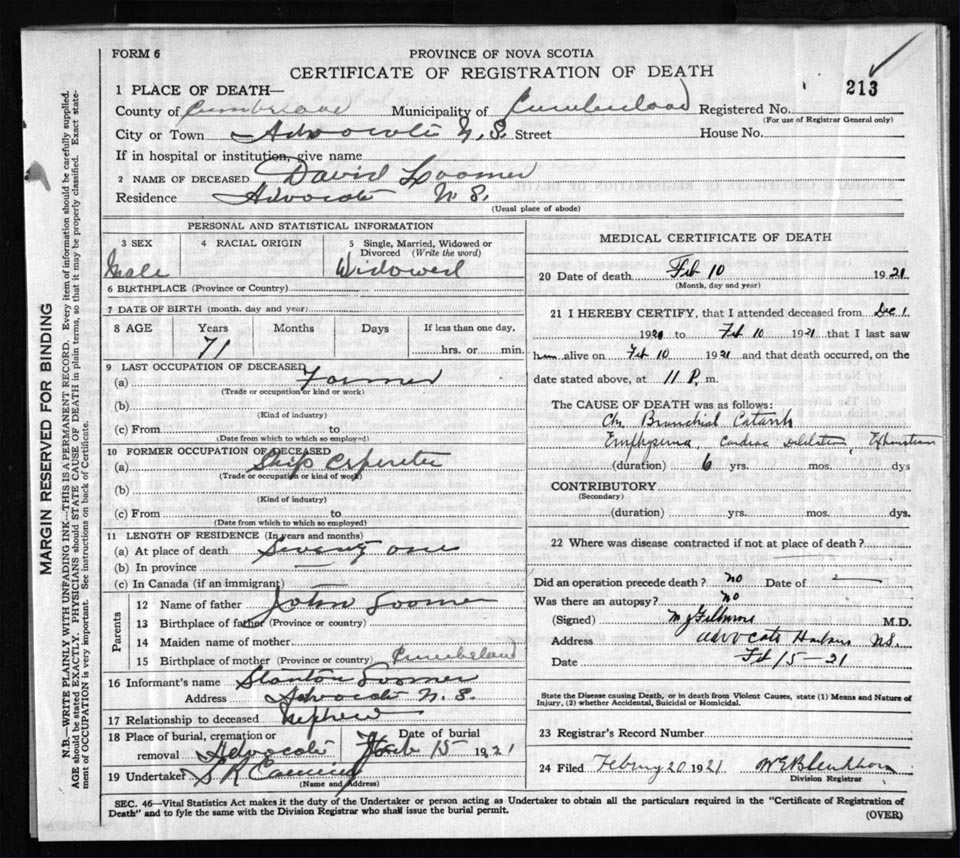 FORM 6
PROVINCE OF NOVA SCOTIA
CERTIFICATE OF REGISTRATION OF DEATH
213
1 PLACE OF DEATH—
County of Cumberland Municipality of Cumberland Registered No.
(For use of Registrar General only)
City or Town Advocate N.S. Street House No.
If in hospital or institution, give name
2 NAME OF DECEASED David Loomer
Residence Advocate N.S.
(Usual place of abode)
PERSONAL AND STATISTICAL INFORMATION
3 SEX 4 RACIAL ORIGIN 5 Single, Married, Widowed or Divorced (Write the word)
Male Widowed
6 BIRTHPLACE (Province or Country)
7 DATE OF BIRTH (month, day and year)
8 AGE Years Months Days If less than one day,
71 hrs. or min.
9 LAST OCCUPATION OF DECEASED
(a) Farmer
(Trade or occupation or kind or work)
(b)
(Kind of industry)
(c) From to
(Date from which to which so employed)
10 FORMER OCCUPATION OF DECEASED
(a) Ship Carpenter
(Trade or occupation or kind of work)
(b)
(Kind of industry)
(c) From to
(Date from which to which so employed)
11 LENGTH OF RESIDENCE (In years and months)
(a) At place of death Seventy one
(b) In province —
(c) In Canada (if an immigrant) —
Parents
12 Name of father John Loomer
13 Birthplace of father (Province or country)
14 Maiden name of mother
15 Birthplace of mother (Province or country) Cumberland
16 Informant's name Stanton Loomer
Address Advocate N.S.
17 Relationship to deceased Nephew
18 Place of burial, cremation or removal Date of burial
Advocate Feb 15 1921
19 Undertaker S R
(Name and Address)
MEDICAL CERTIFICATE OF DEATH
20 Date of death Feb 10 1921
(Month, day and year)
21 I HEREBY CERTIFY, that I attended deceased from Dec 1
1920 to Feb 10 1921 that I last saw
him alive on Feb 10 1921 and that death occurred, on the
date stated above, at 11 P. m.
The CAUSE OF DEATH was as follows:
Chr Bronchial Catarrh
Emphysema, Cardiac Dilatation, Exhaustion
(duration) 6 yrs. mos. dys
CONTRIBUTORY
(Secondary)
(duration) yrs. mos. dys.
22 Where was disease contracted if not at place of death?
Did an operation precede death? no Date of —
Was there an autopsy? no
(Signed) M.D.
Address Advocate Harbour N.S.
Date Feb 15—21
State the Disease causing Death, or in death from Violent Causes, state (1) Means and Nature of
Injury, (2) whether Accidental, Suicidal or Homicidal.
23 Registrar's Record Number
24 Filed 20 1921
Division Registrar
SEC. 46—Vital Statistics Act makes it the duty of the Undertaker or person acting as Undertaker to obtain all the particulars required in the "Certificate of Registration of
Death" and to fyle the same with the Division Registrar who shall issue the burial permit.
(OVER)
MARGIN RESERVED FOR BINDING
N.B.—WRITE PLAINLY WITH UNFADING INK—THIS IS A PERMANENT RECORD. Every item of information should be carefully supplied.
AGE should be stated EXACTLY. PHYSICIANS should STATE CAUSE OF DEATH in plain terms, so that it may be properly classified. Exact state-
ment of OCCUPATION is very important. See instructions on back of Certificate.